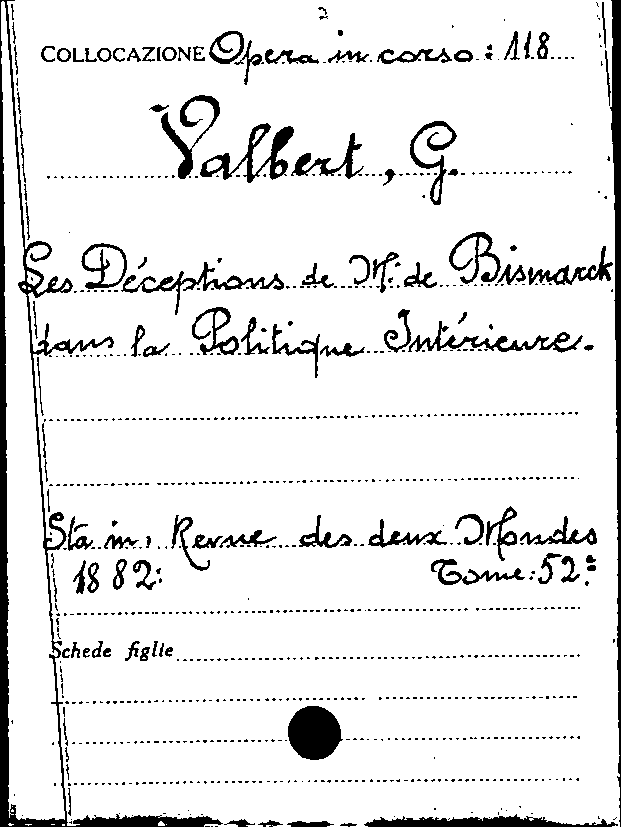 2
COLLOCAZIONE Opera in corso: 118
Valbert, G.
Les Déceptions de M. de Bismarck
dans la Politique Intérieure.
Sta in, Revue des deux Mondes
1882: Tome: 52.º
Schede figlie